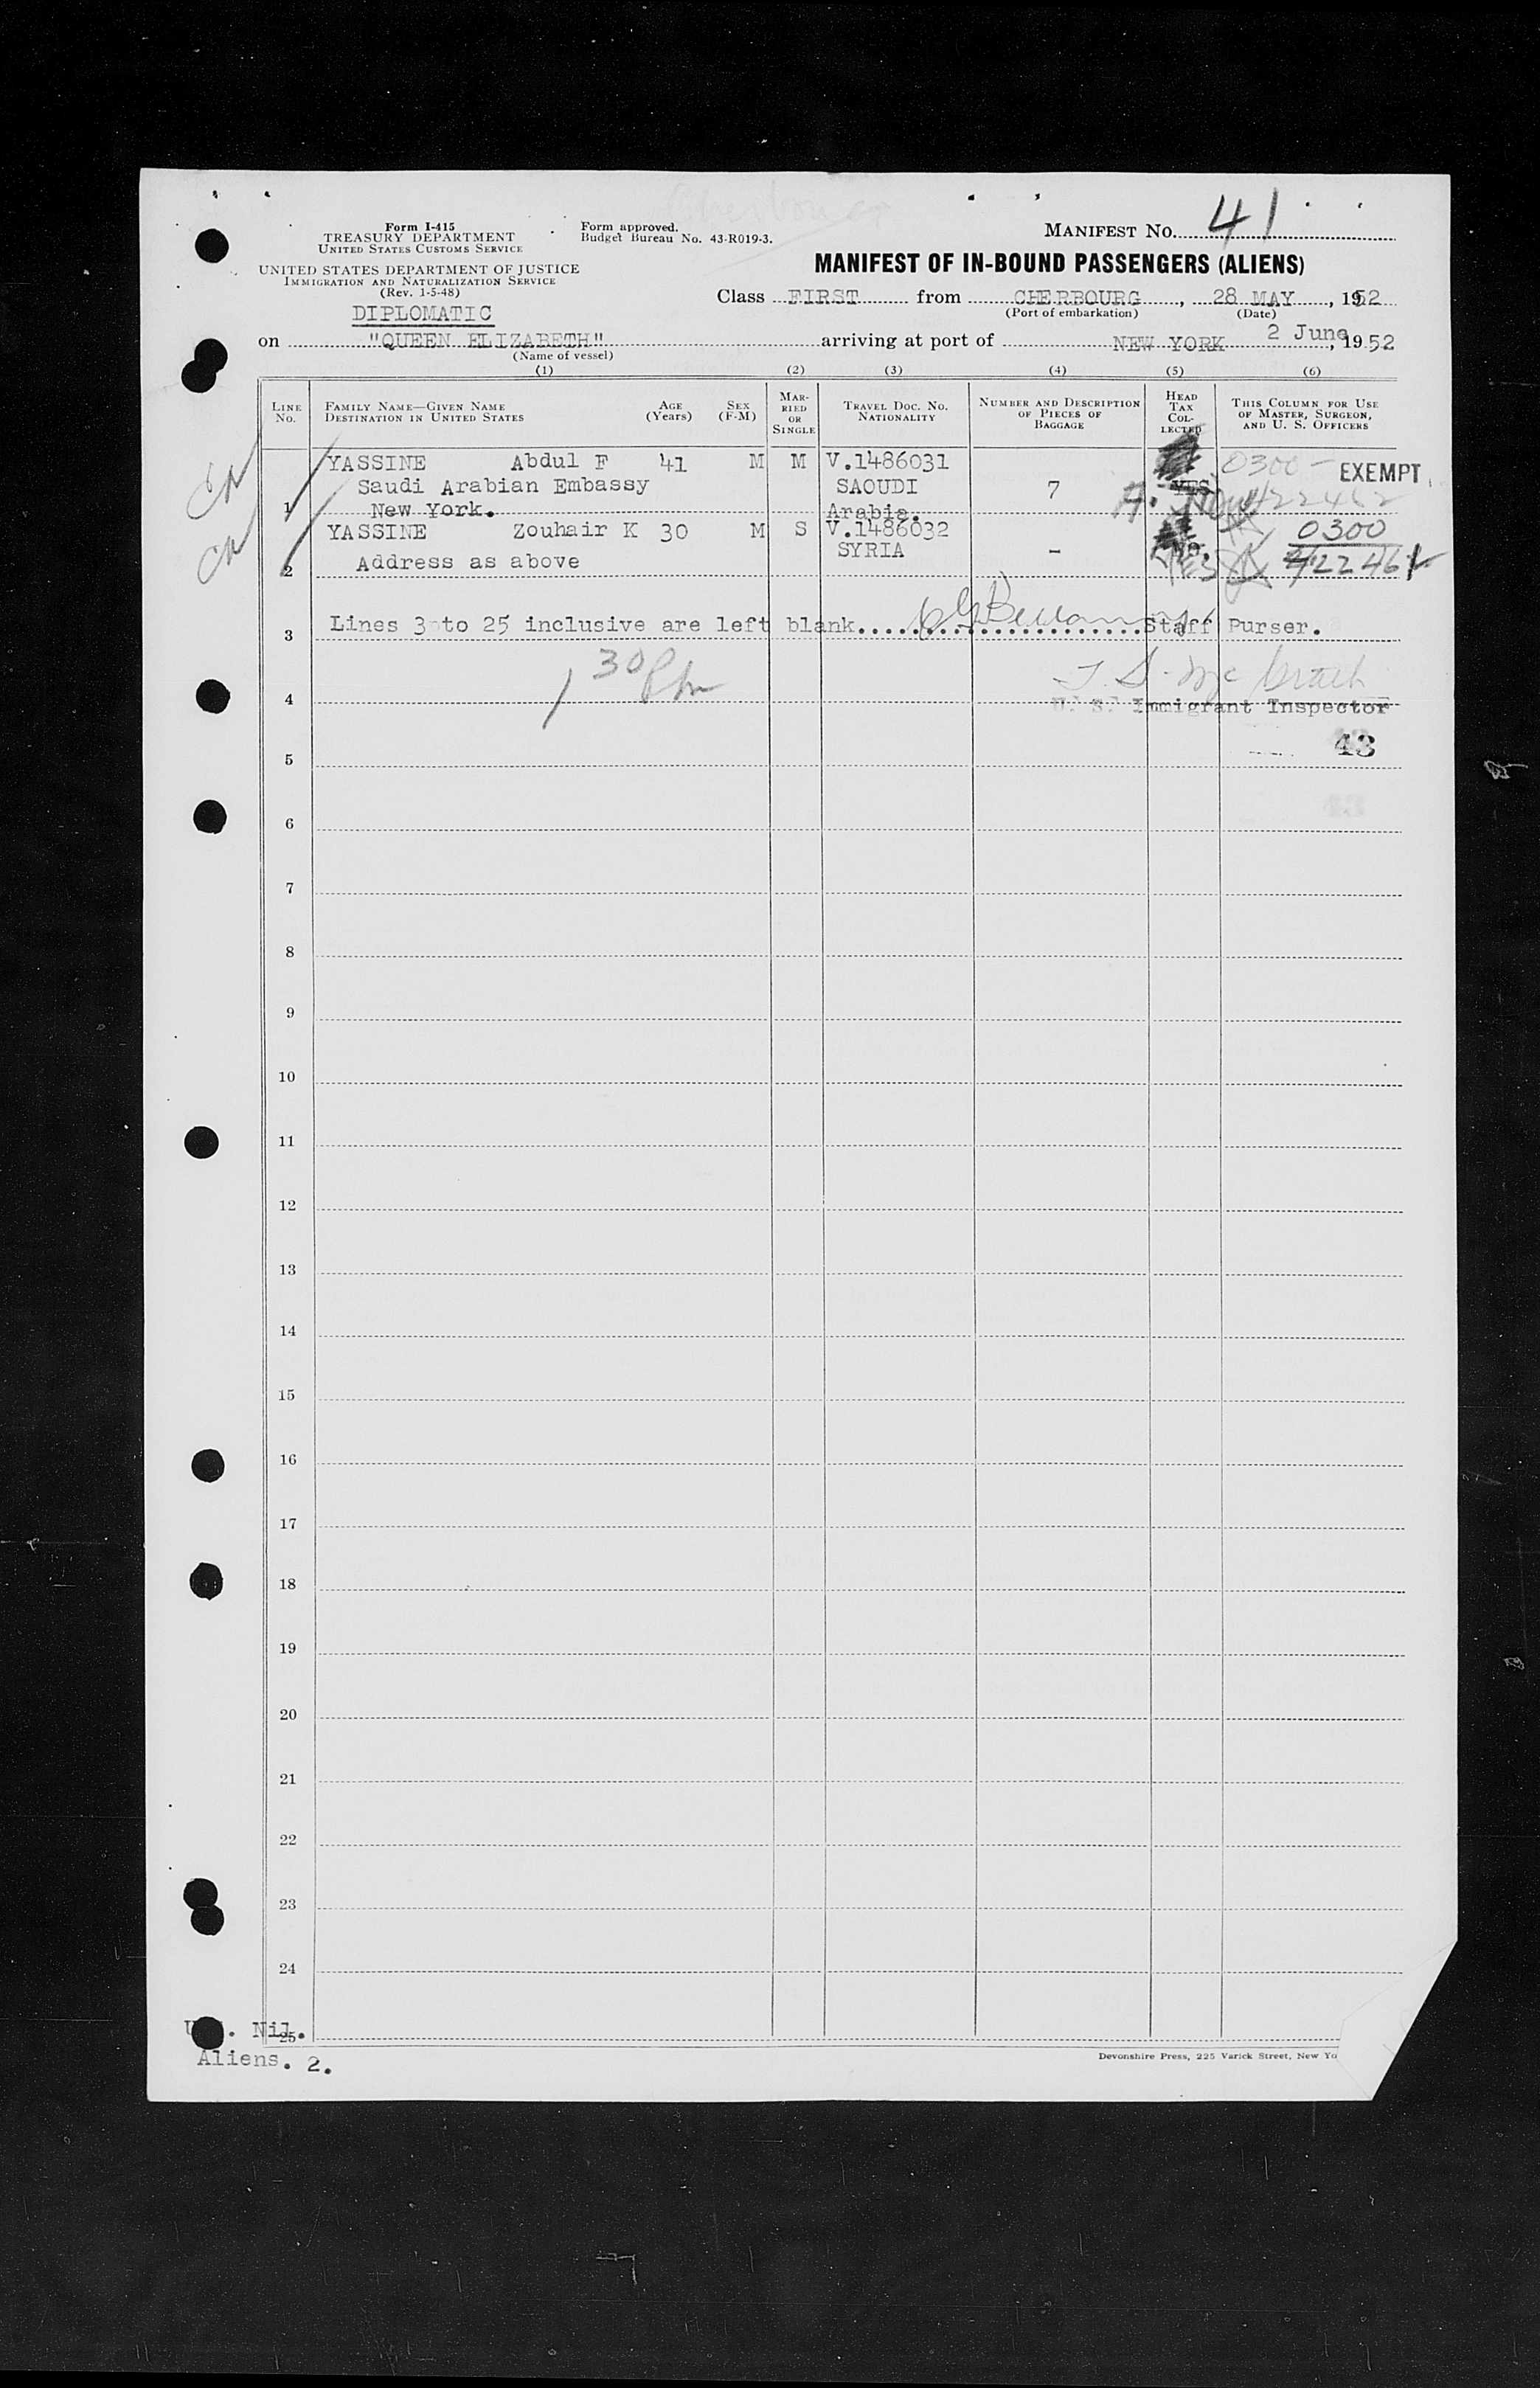 Form I-415
TREASURY DEPARTMENT
UNITED STATES CUSTOMS SERVICE
Form approved.
Budget Bureau No. 43-R019-3.
MANIFEST No. 41
UNITED STATES DEPARTMENT OF JUSTICE
IMMIGRATION AND NATURALIZATION SERVICE
(Rev. 1-5-48)
MANIFEST OF IN-BOUND PASSENGERS (ALIENS)
DIPLOMATIC
Class FIRST from CHERBOURG, 28 MAY, 1952
(Port of embarkation) (Date)
on "QUEEN ELIZABETH" arriving at port of NEW YORK 2 June, 1952
(Name of vessel)
(1) (2) (3) (4) (5) (6)
LINE No.
FAMILY NAME—GIVEN NAME
DESTINATION IN UNITED STATES
AGE (Years)
SEX (F-M)
MARRIED OR SINGLE
TRAVEL DOC. NO. NATIONALITY
NUMBER AND DESCRIPTION OF PIECES OF BAGGAGE
HEAD TAX COLLECTED
THIS COLUMN FOR USE OF MASTER, SURGEON, AND U. S. OFFICERS
YASSINE Abdul F 41 M M V.1486031 0300- EXEMPT
Saudi Arabian Embassy SAOUDI 7 YES
1 New York. Arabia. 422462
YASSINE Zouhair K 30 M S V.1486032 0300
Address as above SYRIA - No. 422461
2 YES
3 Lines 3 to 25 inclusive are left blank. Staff Purser.
1 30 Pm
4 U. S. Immigrant Inspector
43
5
6
7
8
9
10
11
12
13
14
15
16
17
18
19
20
21
22
23
24
25
Nil.
Aliens. 2.
Devonshire Press, 225 Varick Street, New Yo